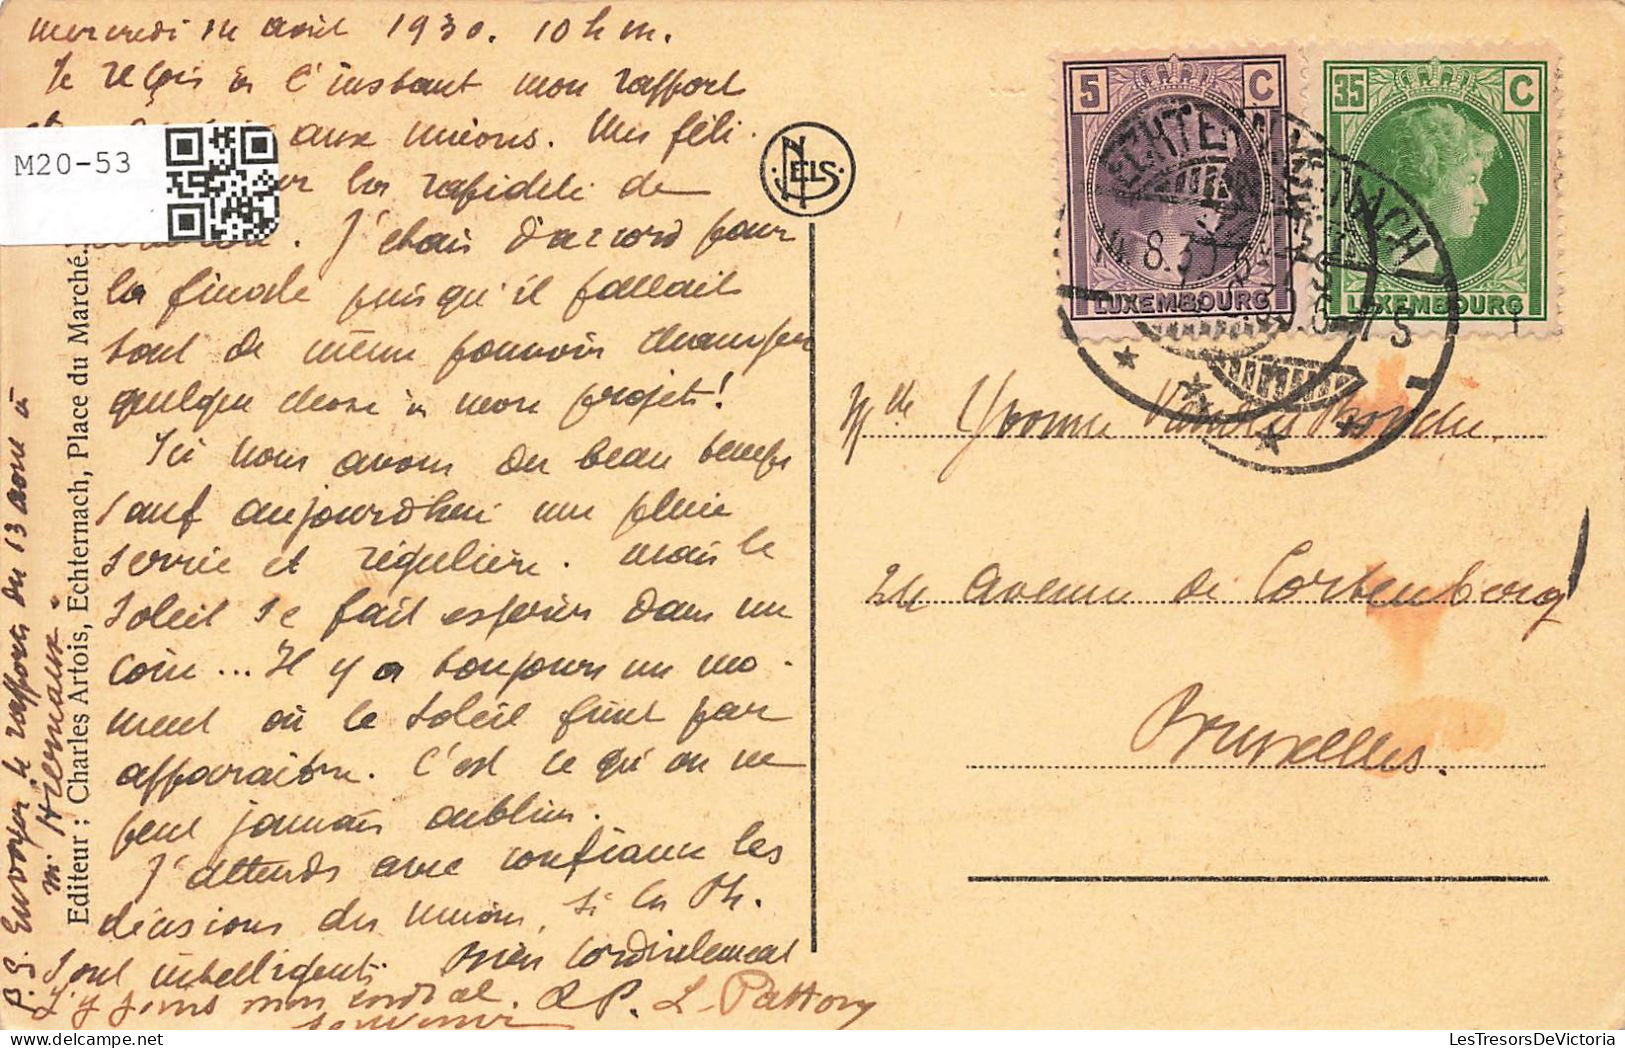 Mercredi 14 août 1930. 10 h m.
Je reçois à l'instant mon rapport
aux unions. Mes féli-
la rapidité de
J'étais d'accord pour
la finale puisqu'il fallait
tout de même pouvoir changer
quelque chose à mon projet!
Ici nous avons du beau temps
sauf aujourd'hui une pluie
serrée et régulière. Mais le
soleil se fait espérer dans un
coin... Il y a toujours un mo-
ment où le soleil finit par
apparaître. C'est ce qu'on ne
peut jamais oublier.
J'attends avec confiance les
décisions des unions, si les Ph.
sont intelligents. Bien cordialement
J'y joins mon cordial souvenir
RP. L. Pattory
P.S. Envoyer le rapport du 13 août à
M. Hiernaux.
M20-53
Editeur : Charles Artois, Echternach, Place du Marché.
NELS.
5 C
LUXEMBOURG
35 C
LUXEMBOURG
ECHTERNACH
14.8.30
Mlle Yvonne
24 Avenue de Cortenberg
Bruxelles.
LesTresorsDeVictoria